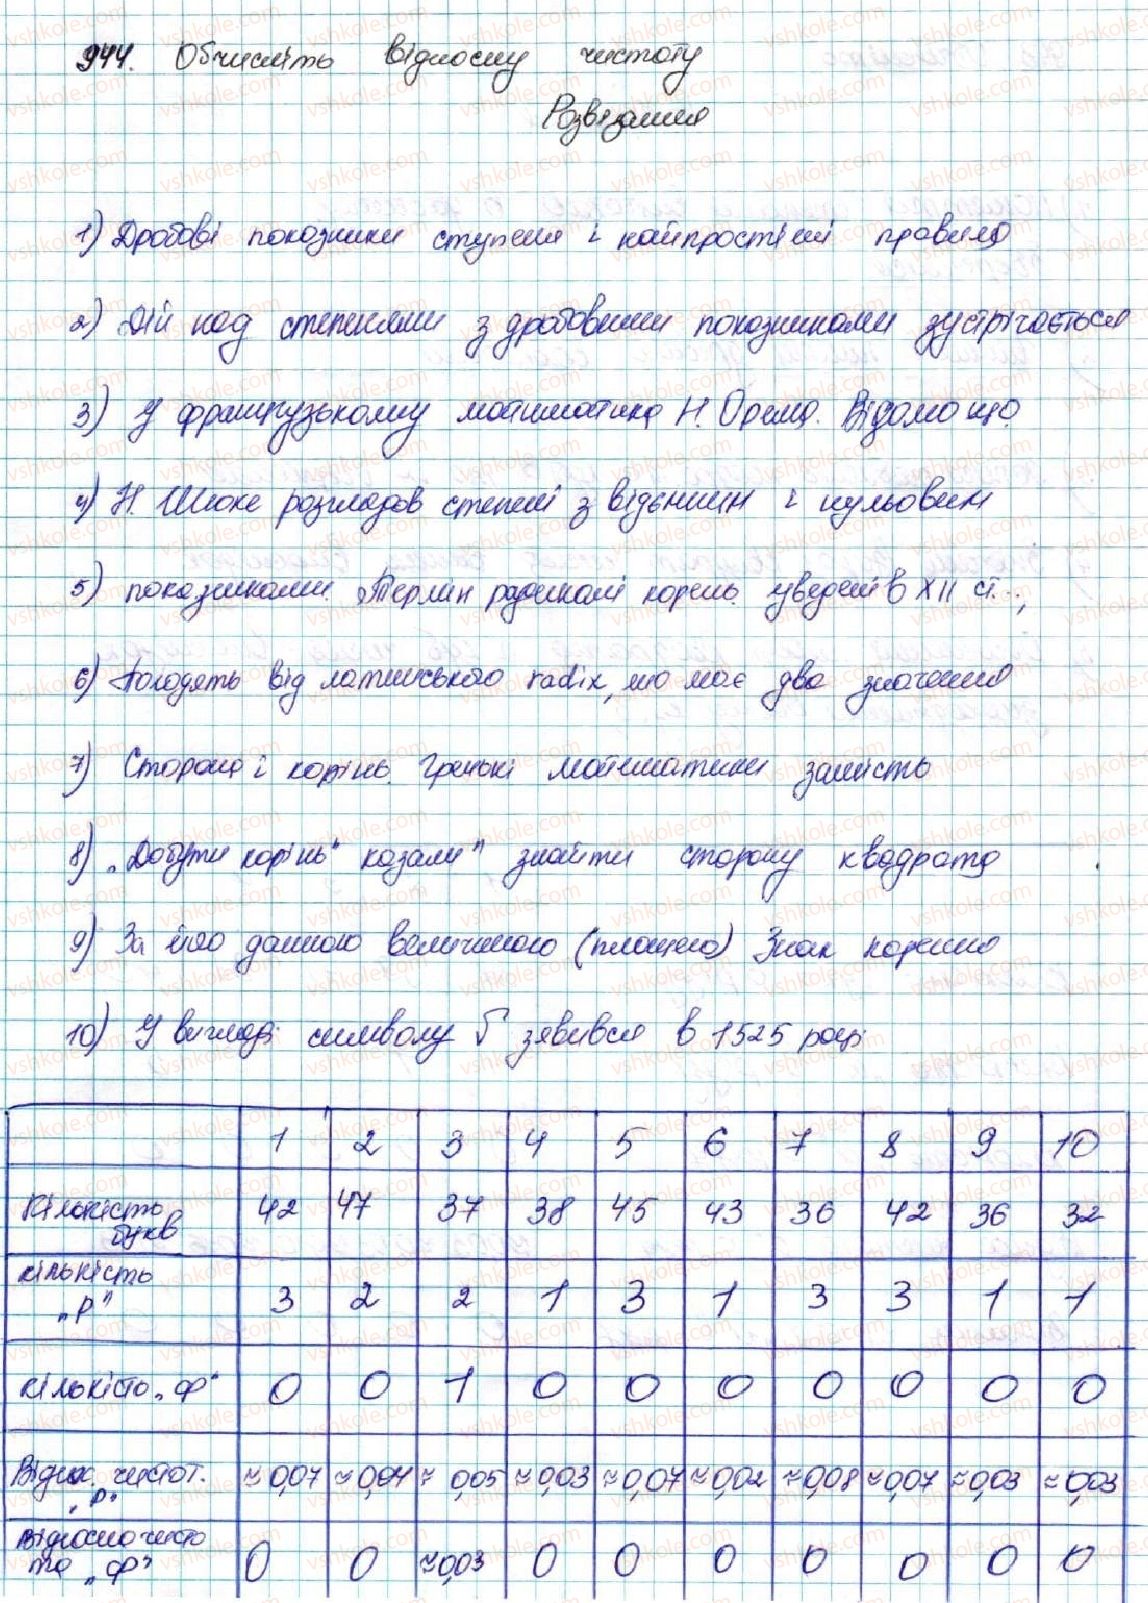 944. Обчисліть відносну частоту
Розв'язання
1) Дробові показники ступеня і найпростіші правила
2) Дій над степенями з дробовими показниками зустрічається
3) У французькому математика Н. Орема. Відомо що.
4) Н. Шюке розглядав степені з від'ємним і нульовим
5) показниками. „Термін радикалі корень уведені в XII ст..,
6) Походять від латинського radix, що має два значення
7) Сторона і корінь. Грецькі математики замість
8) „Добути корінь" казали" знайти сторону квадрата
9) За його даною величиною (площею) Знак кореню
10) У вигляді символу √ зявився в 1525 році
1 2 3 4 5 6 7 8 9 10
Кількість букв 42 47 37 38 45 43 36 42 36 32
кількість „р" 3 2 2 1 3 1 3 3 1 1
кількістю „ф" 0 0 1 0 0 0 0 0 0 0
Віднос. частот. „р" ≈0,07 ≈0,04 ≈0,05 ≈0,03 ≈0,07 ≈0,02 ≈0,08 ≈0,07 ≈0,03 ≈0,03
Відносна часто та „ф" 0 0 ≈0,03 0 0 0 0 0 0 0